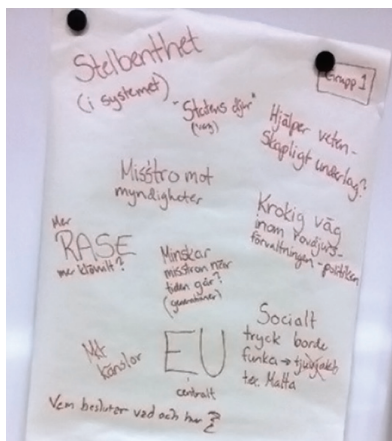 Stelbenthet
(i systemet)
Grupp 1
"Statens djur"
(varg)
Hjälper veten-
skapligt underlag?
Misstro mot
myndigheter
Krokig väg
inom rovdjurs-
förvaltningen - politiken
Mer
RASE
mer klövvilt?
Minskar
misstron när
tiden går?
(generationer)
Socialt
tryck borde
funka → tjuvjakt
tex. Malta
känslor
EU
centralt
Vem beslutar vad och hur?